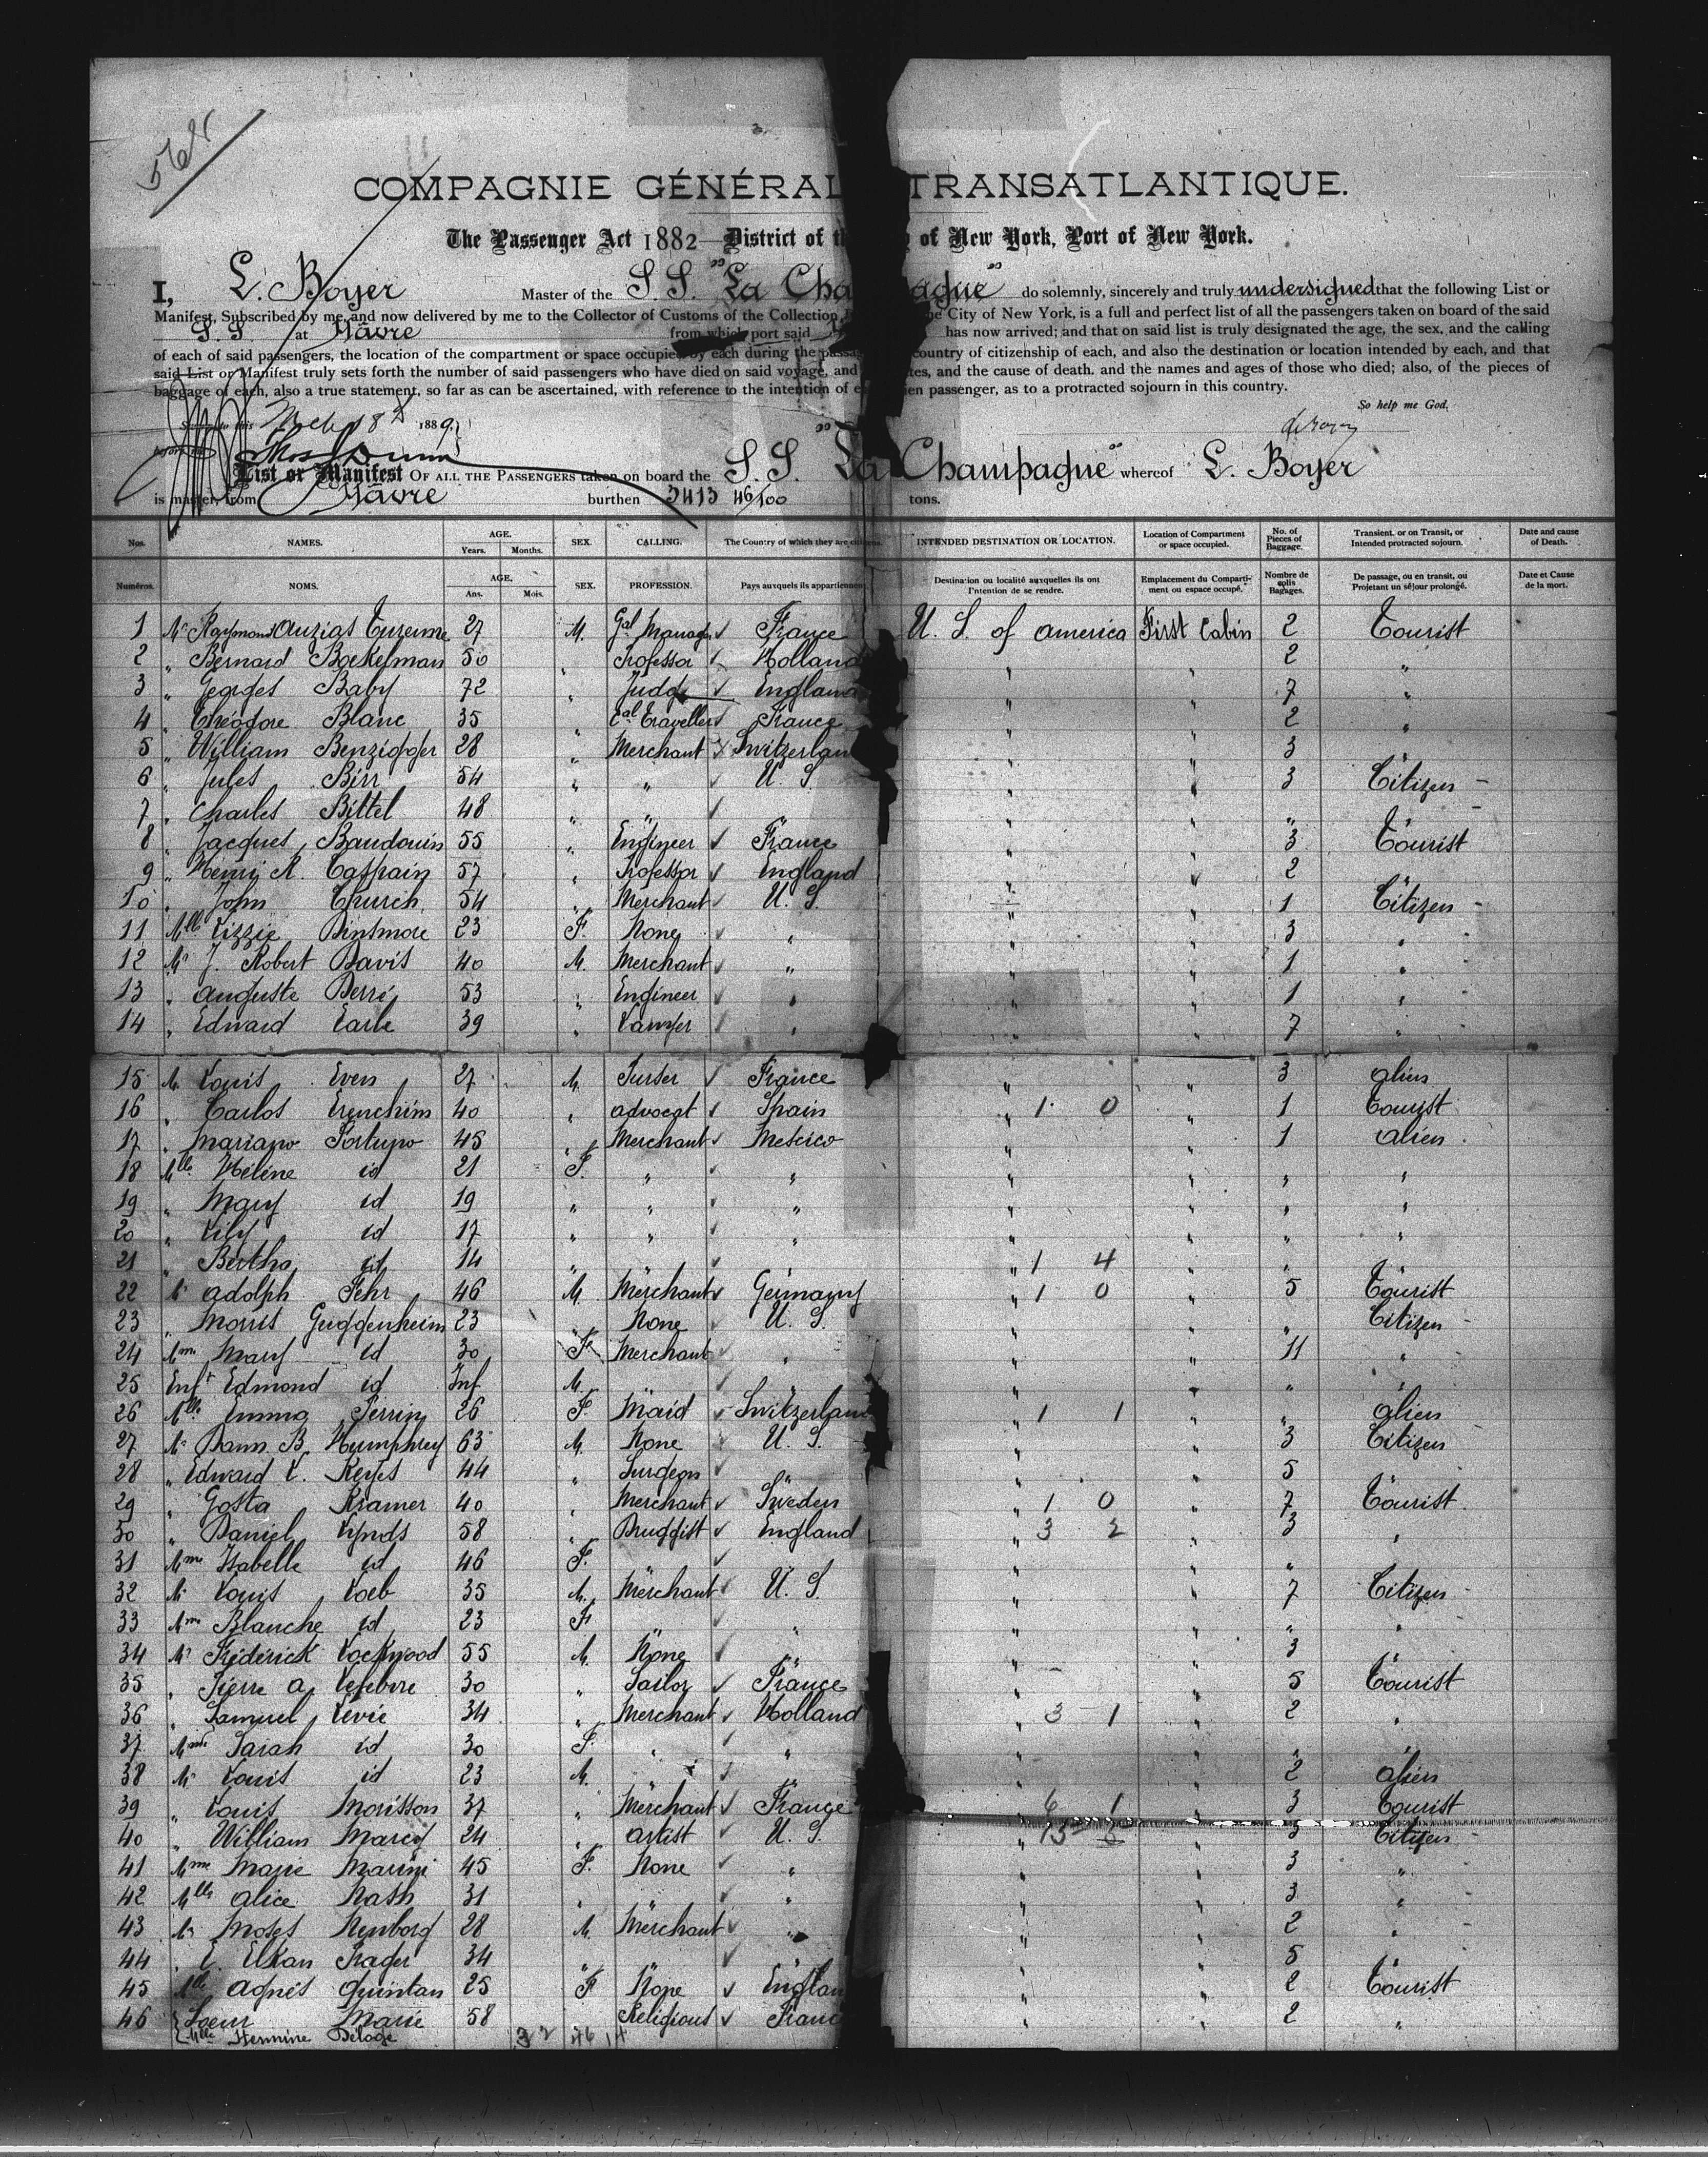 564
COMPAGNIE GÉNÉRAL TRANSATLANTIQUE.
The Passenger Act 1882 District of th of New York, Port of New York.
I, L. Boyer Master of the S. S. "La Cha agne" do solemnly, sincerely and truly undersigned that the following List or
Manifest, Subscribed by me, and now delivered by me to the Collector of Customs of the Collection e City of New York, is a full and perfect list of all the passengers taken on board of the said
S. S. at Hâvre from which port said has now arrived; and that on said list is truly designated the age, the sex, and the calling
of each of said passengers, the location of the compartment or space occupied by each during the passa country of citizenship of each, and also the destination or location intended by each, and that
said List or Manifest truly sets forth the number of said passengers who have died on said voyage, and tes, and the cause of death. and the names and ages of those who died; also, of the pieces of
baggage of each, also a true statement, so far as can be ascertained, with reference to the intention of e en passenger, as to a protracted sojourn in this country.
So help me God.
Sworn to this 18 1889
before me Thos Dunn
List or Manifest OF ALL THE PASSENGERS taken on board the S. S. La Champagne" whereof L. Boyer
is master, from Hâvre burthen 3413 46/100 tons.
Nos. NAMES. AGE. Years. Months. SEX. CALLING. The Country of which they are citizens. INTENDED DESTINATION OR LOCATION. Location of Compartment or space occupied. No. of Pieces of Baggage. Transient. or on Transit, or Intended protracted sojourn. Date and cause of Death.
Numéros. NOMS. AGE, Ans. Mois. SEX. PROFESSION. Pays auxquels ils appartiennent Destination ou localité auxquelles ils ont l'intention de se rendre. Emplacement du Compartiment ou espace occupé. Nombre de colis Bagages. De passage, ou en transit, ou Projetant un séjour prolongé. Date et Cause de la mort.
1 Mr Raymond Auzias Turenne 27 M. Gal Manager France U. S. of America First Cabin 2 Tourist
2 " Bernard Boekelman 50 " Professor Holland " " 2 "
3 " Georges Baby 72 " Judge England " " 7 "
4 " Théodore Blanc 35 " Cal Traveller France " " 2 "
5 " William Benziger 28 " Merchant Switzerlan " " 3 "
6 " Jules Birr 54 " " U. S. " " 3 Citizen
7 " Charles Bittel 48 " " " " " " "
8 " Jacques Baudouin 55 " Engineer France " " 3 Tourist
9 " Henri R. Caspain 57 " Professor England " " 2 "
10 " John Church 54 " Merchant U. S. " " 1 Citizen
11 Mlle Lizzie Dinsmore 23 F. None " " " 3 "
12 Mr J. Robert Davis 40 M. Merchant " " " 1 "
13 " Auguste Derré 53 " Engineer " " " 1 "
14 " Edward Earle 39 " Lawyer " " " 7 "
15 M. Louis Even 27 M. Purser France " " 3 alien
16 " Carlos 40 " advocat Spain " 1 0 " 1 tourist
17 " Mariano Fortuno 45 " Merchant Mescico " " 1 alien
18 Mlle Hélène id 21 F. " " " " " "
19 " Mary id 19 " " " " " " "
20 " Lily id 17 " " " " " " "
21 " Bertha id 14 " " 1 4 " " "
22 Mr Adolph Fehr 46 M. Merchant Germany " 1 0 " 5 Tourist
23 " Morris Guggenheim 23 " None U. S. " " " Citizen
24 Mme Mary id 30 F. Merchant " " " 11 "
25 Enft Edmond id Inf M. " " " " " "
26 Mlle Emma Perrin 26 F. Maid Switzerland " 1 1 " " alien
27 Mr Dann. B. Humphrey 63 M. None U. S. " " 3 Citizen
28 " Edward L. Keyes 44 " Surgeon " " " 5 "
29 " Gosta Kramer 40 " Merchant Sweden " 1 0 " 7 Tourist
30 " Daniel Lynds 58 " Druggist England " 3 2 " 3 "
31 Mme Isabelle id 46 F. " " " " " "
32 Mr Louis Loeb 35 M. Merchant U. S. " " 7 Citizen
33 Mme Blanche id 23 F. " " " " "
34 Mr Fréderick Lockwood 55 M. None " " " 3 "
35 " Pierre A. Lefebvre 30 " Sailor France " " 5 Tourist
36 " Samuel Levie 34 " Merchant Holland " 3 1 " 2 "
37 Mme Sarah id 30 F. " " " " " "
38 Mr Louis id 23 M. " " " " 2 alien
39 " Louis Morisson 37 " Merchant France " 6 1 " 3 Tourist
40 " William Marcy 24 " artist U. S. " " 3 Citizen
41 Mme Marie Marini 45 F. None " " " 3 "
42 Mlle Alice Nash 31 " " " " " 3 "
43 Mr Moses Newborg 28 M. Merchant " " " 2 "
44 " E. Elkan Prager 34 " " " " " 5 "
45 Mlle Agnés Quinlan 25 F None Englan " " 2 Tourist
46 Soeur Marie 58 Religious Franc " " 2 "
Mlle Hermine Deloge 32 46 14